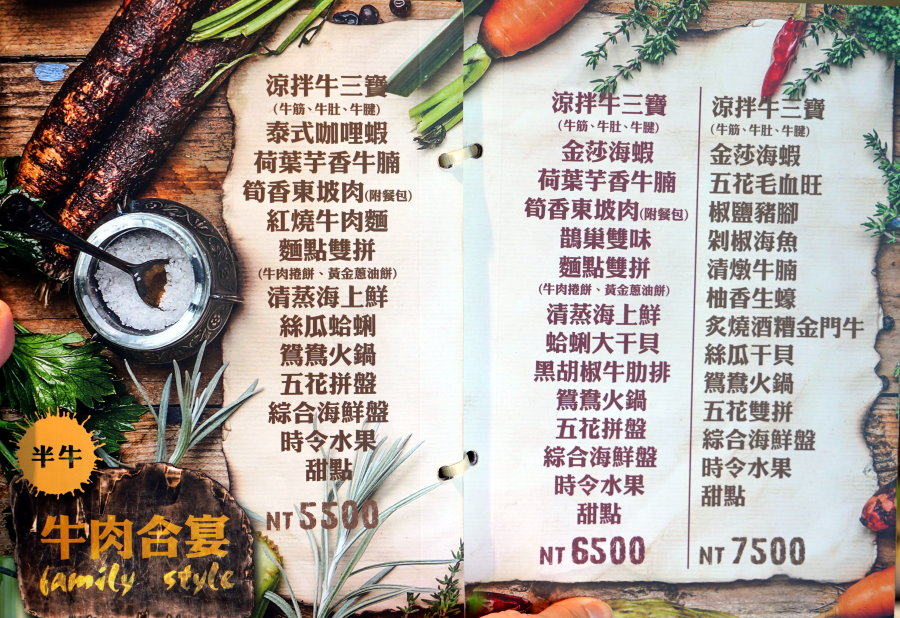 涼拌牛三寶
(牛筋、牛肚、牛腱)
泰式咖哩蝦
荷葉芋香牛腩
筍香東坡肉(附餐包)
紅燒牛肉麵
麵點雙拼
(牛肉捲餅、黃金蔥油餅)
清蒸海上鮮
絲瓜蛤蜊
鴛鴦火鍋
五花拼盤
綜合海鮮盤
時令水果
甜點
NT 5500
半牛
牛肉合宴
family style
涼拌牛三寶
(牛筋、牛肚、牛腱)
金莎海蝦
荷葉芋香牛腩
筍香東坡肉(附餐包)
鵲巢雙味
麵點雙拼
(牛肉捲餅、黃金蔥油餅)
清蒸海上鮮
蛤蜊大干貝
黑胡椒牛肋排
鴛鴦火鍋
五花拼盤
綜合海鮮盤
時令水果
甜點
NT 6500
涼拌牛三寶
(牛筋、牛肚、牛腱)
金莎海蝦
五花毛血旺
椒鹽豬腳
剁椒海魚
清燉牛腩
柚香生蠔
炙燒酒糟金門牛
絲瓜干貝
鴛鴦火鍋
五花雙拼
綜合海鮮盤
時令水果
甜點
NT 7500